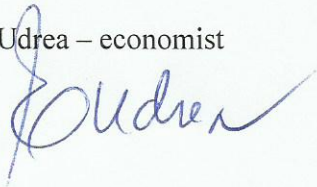 Udrea – economist
Udrea